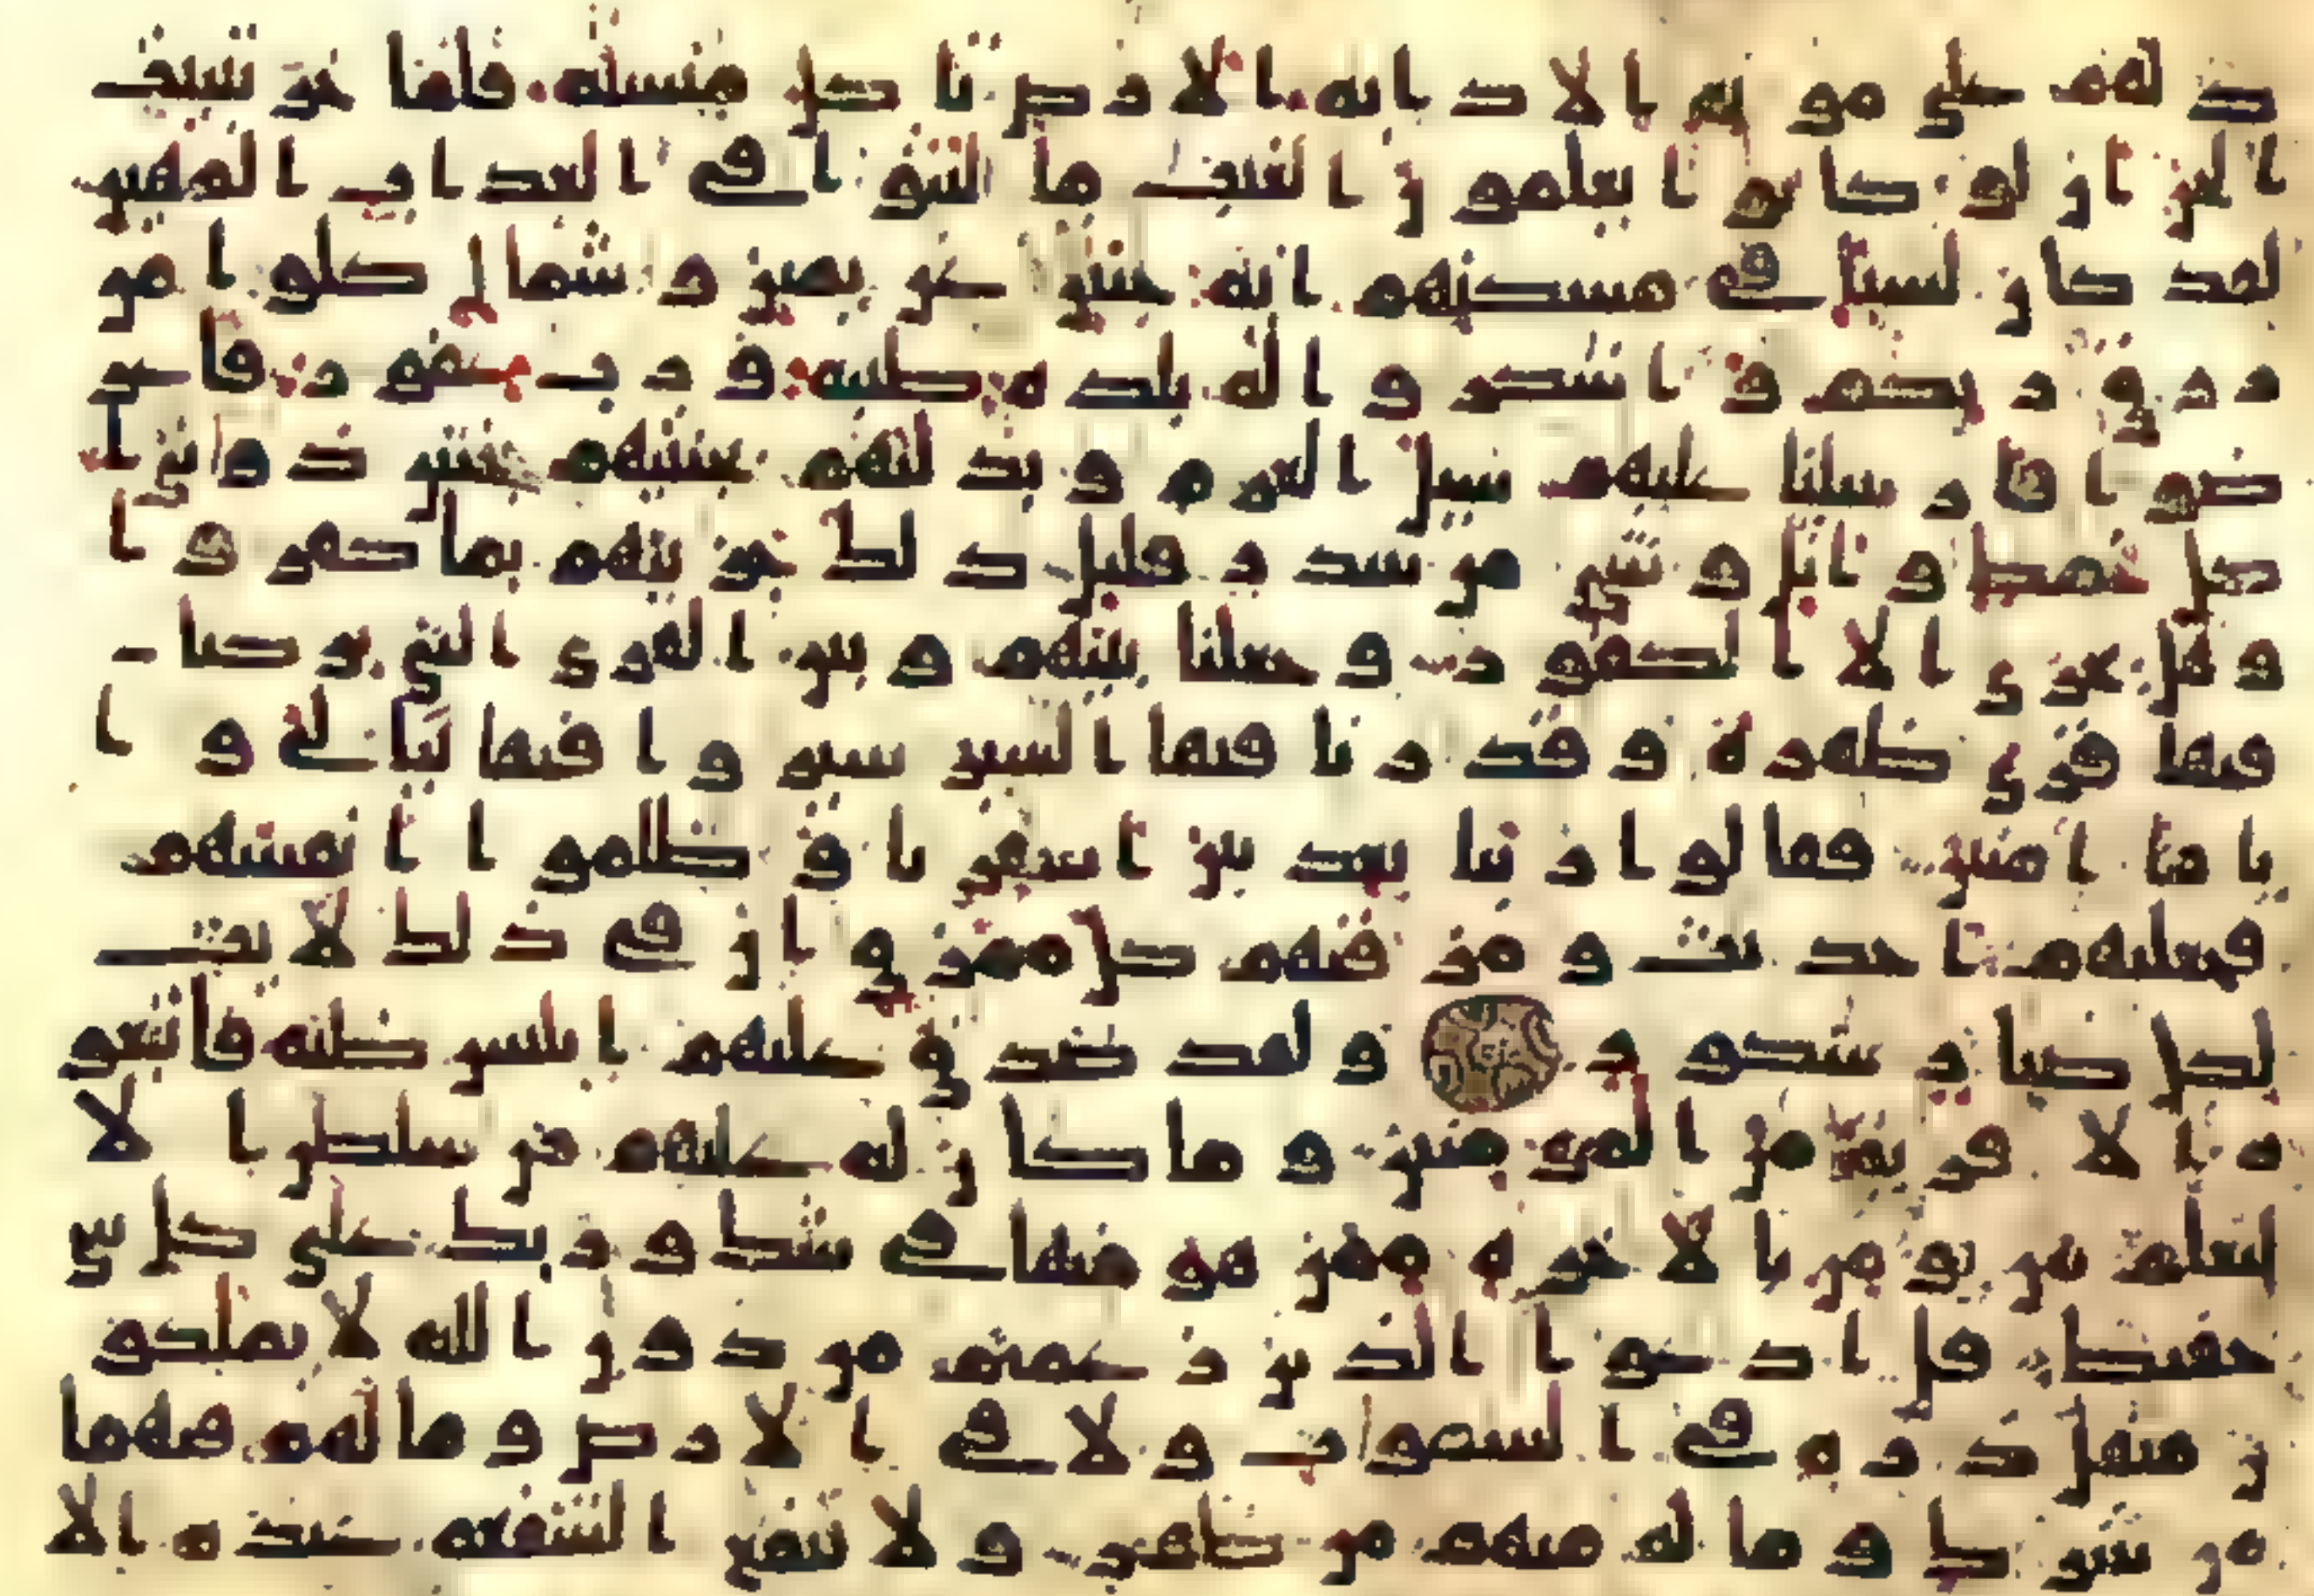 د لهم على موته الا دابه الارض تاكل منسأته فلما خر تبينت
الجن ان لو كانوا يعلمون الغيب ما لبثوا في العذاب المهين
لقد كان لسبا في مسكنهم ايه جنتين عن يمين و شمال كلوا من
رزق ربكم و اشكروا له بلده طيبه و رب غفور فاعر
ضوا فارسلنا عليهم سيل العرم و بدلنهم بجنتيهم جنتين ذواتي ا
كل خمط و اثل و شي من سدر قليل ذلك جزينهم بما كفروا
و هل يجزى الا الكفور و جعلنا بينهم و بين القرى التي بركنا
فيها قرى ظهره و قدرنا فيها السير سيروا فيها ليالي و ا
ياما امنين فقالوا ربنا بعد بين اسفارنا و ظلموا انفسهم
فجعلنهم احديث و مزقنهم كل ممزق ان في ذلك لايت
لكل صبار شكور و لقد صدق عليهم ابليس ظنه فاتبعو
ه الا فريقا من المومنين و ما كان له عليهم من سلطن الا
لنعلم من يومن بالاخره ممن هو منها في شك و ربك على كل شي
حفيظ قل ادعوا الذين زعمتم من دون الله لا يملكو
ن مثقل ذره في السموات و لا في الارض و ما لهم فيهما
من شرك و ما له منهم من ظهير و لا تنفع الشفعه عنده الا